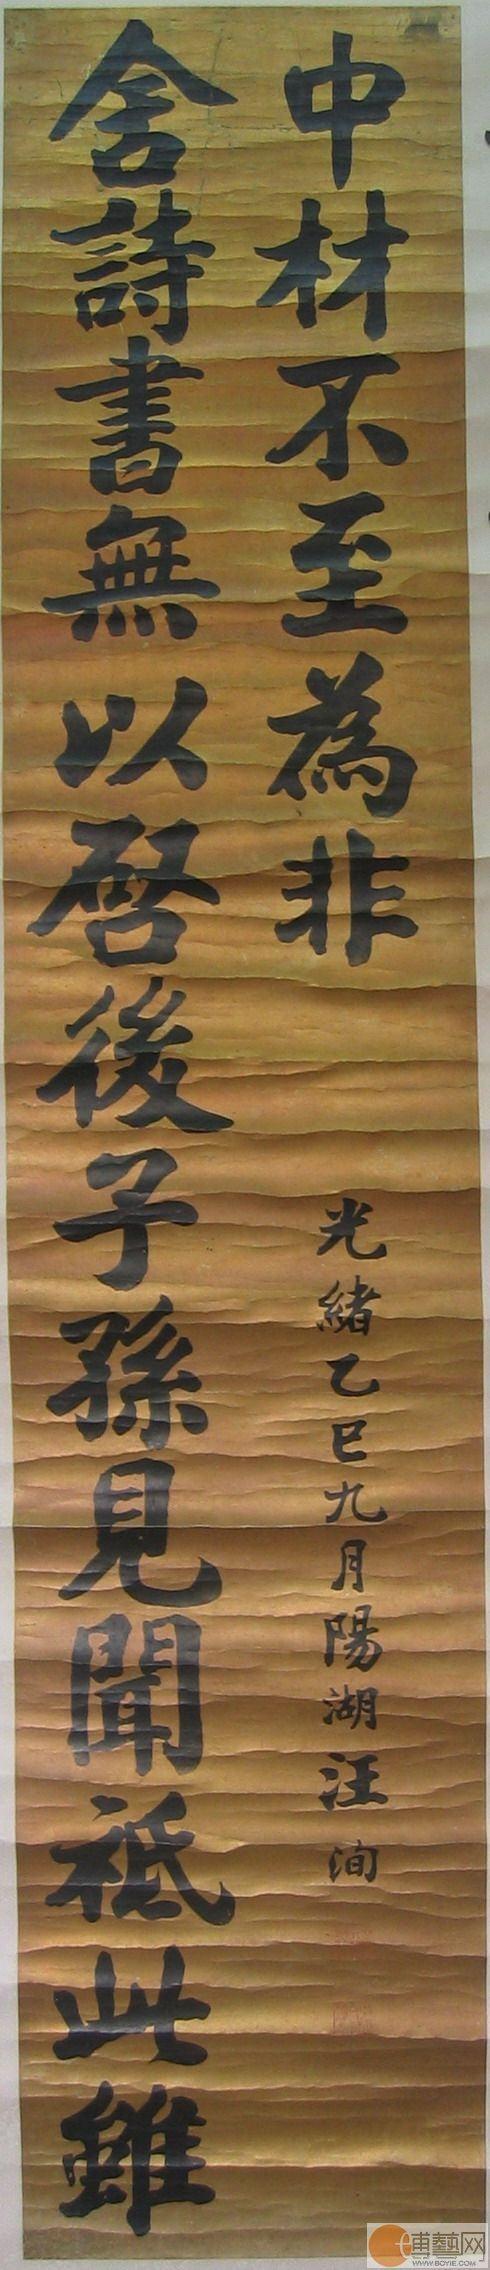 舍詩書無以啓後子孫見聞祗此雖
中材不至為非
光緒乙巳九月陽湖汪洵
博藝网
WWW.BOYIE.COM